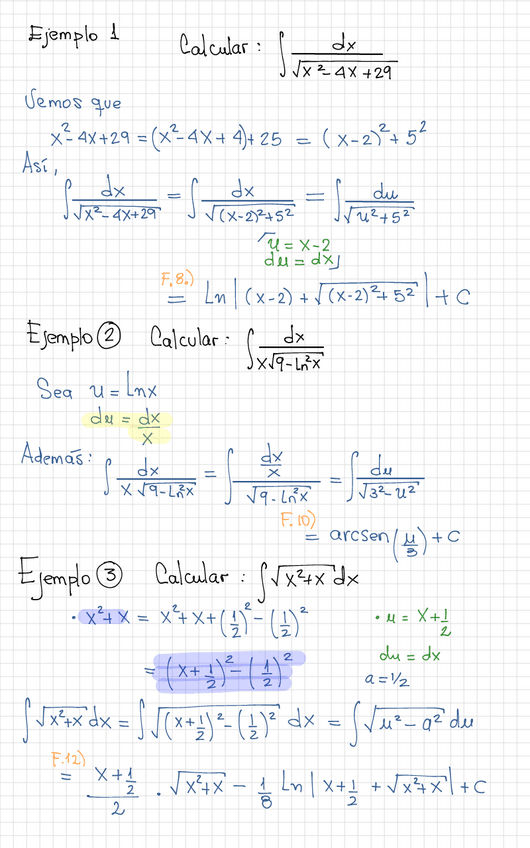 Ejemplo 1 Calcular: ∫ dx / √(x²-4x+29)
Vemos que
x²-4x+29 = (x²-4x+4)+25 = (x-2)²+5²
Así,
∫ dx / √(x²-4x+29) = ∫ dx / √((x-2)²+5²) = ∫ du / √(u²+5²)
u = x-2
du = dx
F.8.)
= Ln | (x-2) + √((x-2)²+5²) | + C
Ejemplo ② Calcular: ∫ dx / x√(9-Ln²x)
Sea u = Lnx
du = dx/x
Además: ∫ dx / x√(9-Ln²x) = ∫ (dx/x) / √(9-Ln²x) = ∫ du / √(3²-u²)
F.10)
= arcsen(u/3) + C
Ejemplo ③ Calcular: ∫√(x²+x) dx
· x²+x = x²+x+(1/2)²-(1/2)² · u = x+1/2
= (x+1/2)²-(1/2)² du = dx
a = 1/2
∫√(x²+x) dx = ∫√((x+1/2)²-(1/2)²) dx = ∫√(u²-a²) du
F.12)
= (x+1/2)/2 · √(x²+x) - 1/8 Ln | x+1/2 + √(x²+x) | + C